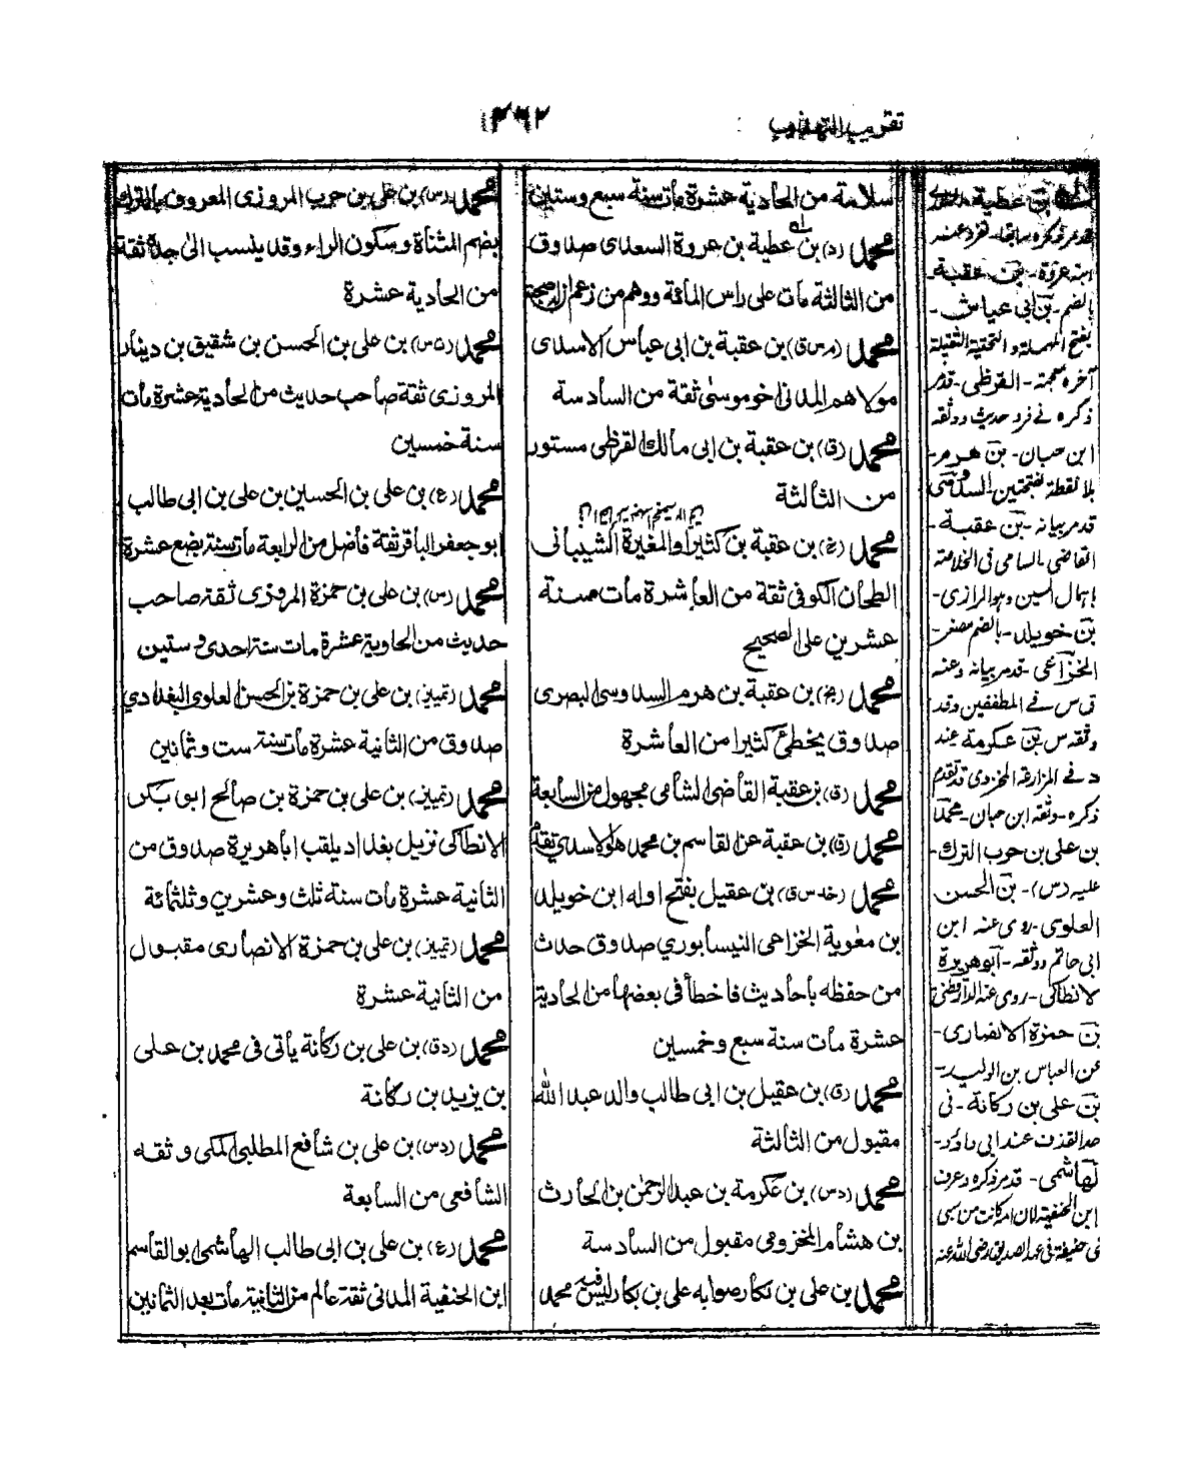 تقريب التهذيب
٣٦٢
سلامة من الحادية عشرة مات سنة سبع وستين
محمد (د) بن عطية بن عروة السعدى صدوق
من الثالثة مات على راس المائة ووهم من زعم ان له صحبة
محمد (م س ق) بن عقبة بن ابى عياش الاسدى
مولاهم المدنى اخو موسى ثقة من السادسة
محمد (ق) بن عقبة بن ابى مالك القرظى مستور
من الثالثة
محمد (خ) بن عقبة بن كثير او المغيرة الشيبانى
الطحان الكوفى ثقة من العاشرة مات سنة
عشرين على الصحيح
محمد (بخ) بن عقبة بن هرم السدوسى البصرى
صدوق يخطئ كثيرا من العاشرة
محمد (ق) بن عقبة القاضى الشامى مجهول من السابعة
محمد (ق) بن عقبة عن القاسم بن محمد هو الاسدي تقدم
محمد (خد س ق) بن عقيل بفتح اوله ابن خويلد
بن معوية الخزاعى النيسابوري صدوق حدث
من حفظه باحاديث فاخطأ فى بعضها من الحادية
عشرة مات سنة سبع وخمسين
محمد (ق) بن عقيل بن ابى طالب والد عبد الله
مقبول من الثالثة
محمد (د س) بن عكرمة بن عبد الرحمن بن الحارث
بن هشام المخزومى مقبول من السادسة
محمد بن على بن بكار صوابه على بن بكار ليس فيه محمد
محمد (س) بن على بن حرب المروزى المعروف بالترك
بضم المثناة وسكون الراء وقد ينسب الى جده ثقة
من الحادية عشرة
محمد (ت س) بن على بن الحسن بن شقيق بن دينار
المروزى ثقة صاحب حديث من الحادية عشرة مات
سنة خمسين
محمد (ع) بن على بن الحسين بن على بن ابى طالب
ابو جعفر الباقر ثقة فاضل من الرابعة مات سنة بضع عشرة
محمد (س) بن على بن حمزة المروزى ثقة صاحب
حديث من الحاوية عشرة مات سنة احدى وستين
محمد (تمييز) بن على بن حمزة بن الحسن العلوى البغدادي
صدوق من الثانية عشرة مات سنة ست وثمانين
محمد (تمييز) بن على بن حمزة بن صالح ابو بكر
الانطاكى نزيل بغداد يلقب ابا هريرة صدوق من
الثانية عشرة مات سنة ثلث وعشرين وثلثمائة
محمد (تمييز) بن على بن حمزة الانصارى مقبول
من الثانية عشرة
محمد (د ق) بن على بن ركانة يأتى فى محمد بن على
بن يزيد بن ركانة
محمد (د س) بن على بن شافع المطلبى المكى وثقه
الشافعى من السابعة
محمد (ع) بن على بن ابى طالب الهاشمى ابو القاسم
ابن الحنفية المدنى ثقة عالم من الثانية مات بعد الثمانين
بن عطية
قدم ذكره سابقا - تفرد عنه
ابنه عروة - بن عقبة
بالضم - بن ابى عياش -
بفتح المهملة والتحتية الثقيلة
آخره معجمة - القرظى - قدم
ذكره فے فرد حديث ووثقه
ابن حبان - بن هرم -
بلا نقطة بفتحتين السدوسى
قدم بيانه - بن عقبة -
القاضى - السامى فى الخلاصة
باهمال السين وهو الرازى -
بن خويلد - بالضم مصغر -
الخزاعى - قدم بيانه وعنه
ق س فے المطففين وقد
وثقه س بن عكرمة عند
د فے المزارعة المخزومى قد تقدم
ذكره - وثقه ابن حبان - محمد
بن على بن حرب الترك -
عليه (س) - بن الحسن
العلوى - روى عنه ابن
ابى حاتم ووثقه - ابو هريرة
لانطاكى - روى عنه الدارقطنى
بن حمزة الانصارى -
عن العباس بن الوليد -
بن على بن ركانة - فى
حد القذف عند ابى داؤد -
الهاشمى - قدم ذكره وعرف
ابن الحنفية لان امه كانت من سبى
بنى حنيفة فى عهد الصديق رضى الله عنه